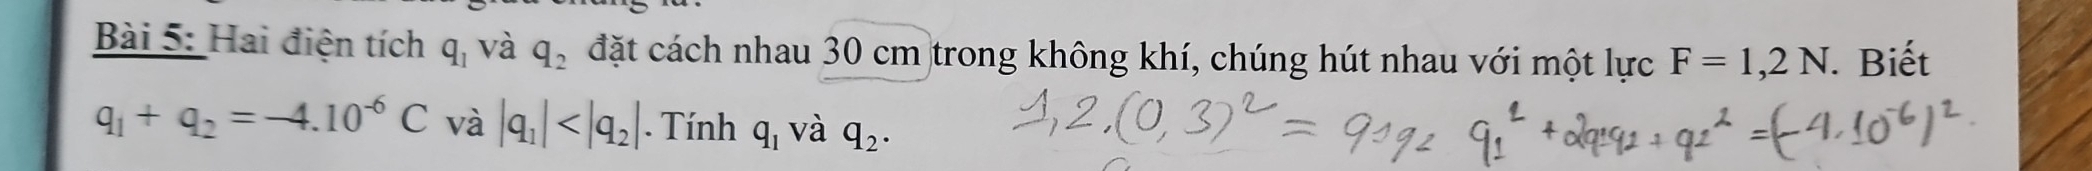 Bài 5: Hai điện tích q₁ và q₂ đặt cách nhau 30 cm trong không khí, chúng hút nhau với một lực F = 1,2 N. Biết
q₁ + q₂ = −4.10⁻⁶ C và |q₁| < |q₂|. Tính q₁ và q₂.
1,2.(0,3)² = q₁q₂ q₁² + 2q₁q₂ + q₂² = (-4.10⁻⁶)²